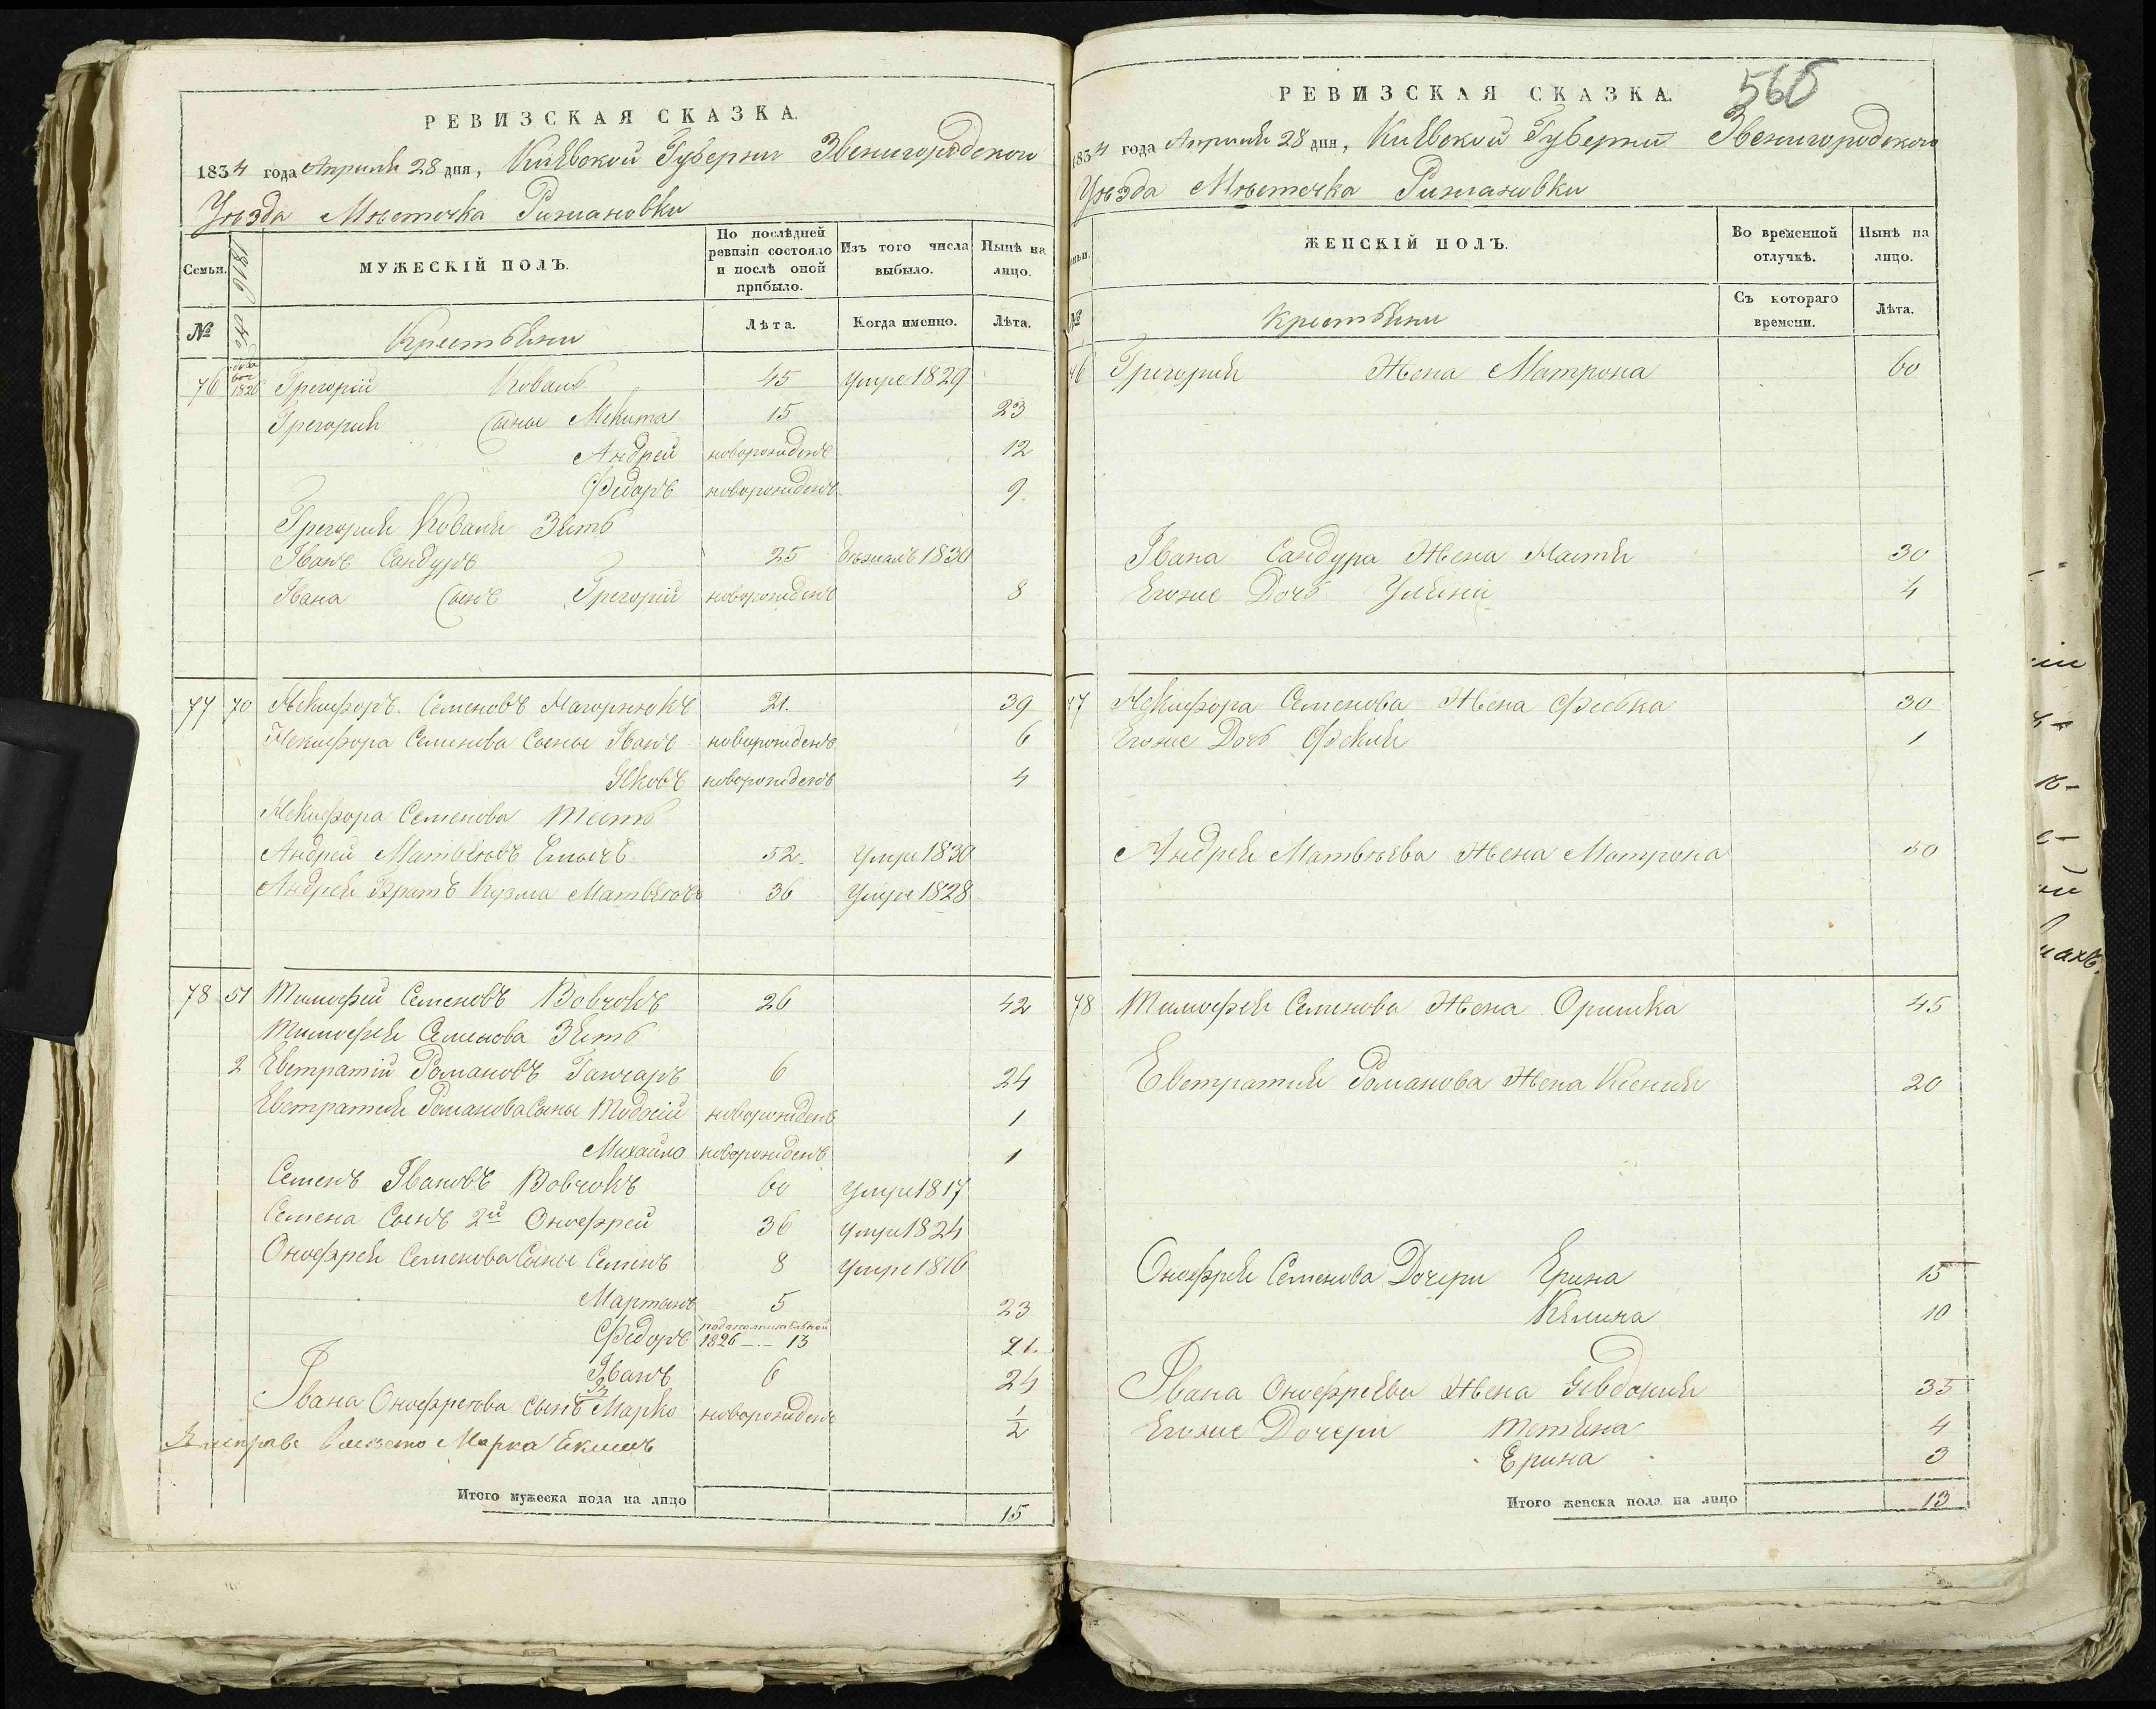 РЕВИЗСКАЯ СКАЗКА.
1834 года Апрѣля 28 дня, Кіевской Губерніи Звенигородского
Уѣзда Мѣстечка Рижановки
Семьи.
1816
МУЖЕСКІЙ ПОЛЪ.
По послѣдней ревизіи состояло и послѣ оной прибыло.
Изъ того числа выбыло.
Нынѣ на лицо.
№
Крестьяни
Лѣта.
Когда именно.
Лѣта.
76 1826 Григорій Коваль 45 умре 1829
Григорія Сыны Мекита 15 23
Андрей новорожденъ 12
Федоръ новорожденъ 9.
Григорія Коваля Зять
Іванъ Сандуръ 25 бѣжалъ 1830
Івана Сынъ Григорій новорожденъ 8
77 70 Некифоръ Семеновъ Нагорнюкъ 21. 39
Некифора Семенова Сыны Іванъ новорожденъ 6
Яковъ новорожденъ 4
Некифора Семенова Тесть
Андрей Матвѣювъ 52. Умре 1830
Андрея Братъ Кузма Матвѣювъ 36 Умре 1828
78 51 Тимофей Семеновъ Вовчокъ 26 42
Тимофея Семенова Зять
2 Евтратій Романовъ Ганчаръ 6 24
Евтратія Романова Сыны Тодосій новорожденъ 1
Михайло новорожденъ 1
Семенъ Івановъ Вовчокъ 60 умре 1817
Семена Сынъ 2й Онофрей 36 умре 1824
Онофрея Семенова Сыны Семенъ 8 умре 1816
Мартынъ 5 23
Федоръ 1826 — 13 21.
Іванъ 6 24
Івана Онофреюва сынъ Марко новорожденъ 1/2
вмѣсто Марка Екимъ
Итого мужеска пола на лицо 15
РЕВИЗСКАЯ СКАЗКА.
560
1834 года Апрѣля 28 дня, Кіевской Губерніи Звенигородского
Уѣзда Мѣстечка Рижановки
ЖЕНСКІЙ ПОЛЪ.
Во временной отлучкѣ.
Нынѣ на лицо.
№
Крестьяни
Съ котораго времени.
Лѣта.
76 Григорія Жена Матрона 60
Івана Сандура Жена Настя 30
Егоже Дочь Уляна 4
77 Некифора Семенова Жена Февка 30
Егоже Дочь Фекля 1
Андрея Матвѣева Жена Матрона 50
78 Тимофея Семенова Жена Оришка 45
Евтратія Романова Жена Ксенія 20
Онофрея Семенова Дочери Ерина 15
Килина 10
Івана Онофреева Жена Явдокия 35
Егоже Дочери Тетяна 4
Ерина 3
Итого женска пола на лицо 13